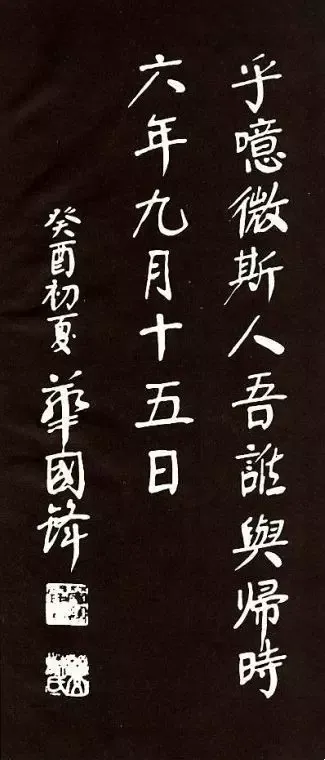 乎噫微斯人吾誰與歸時
六年九月十五日
癸酉初夏 華國鋒